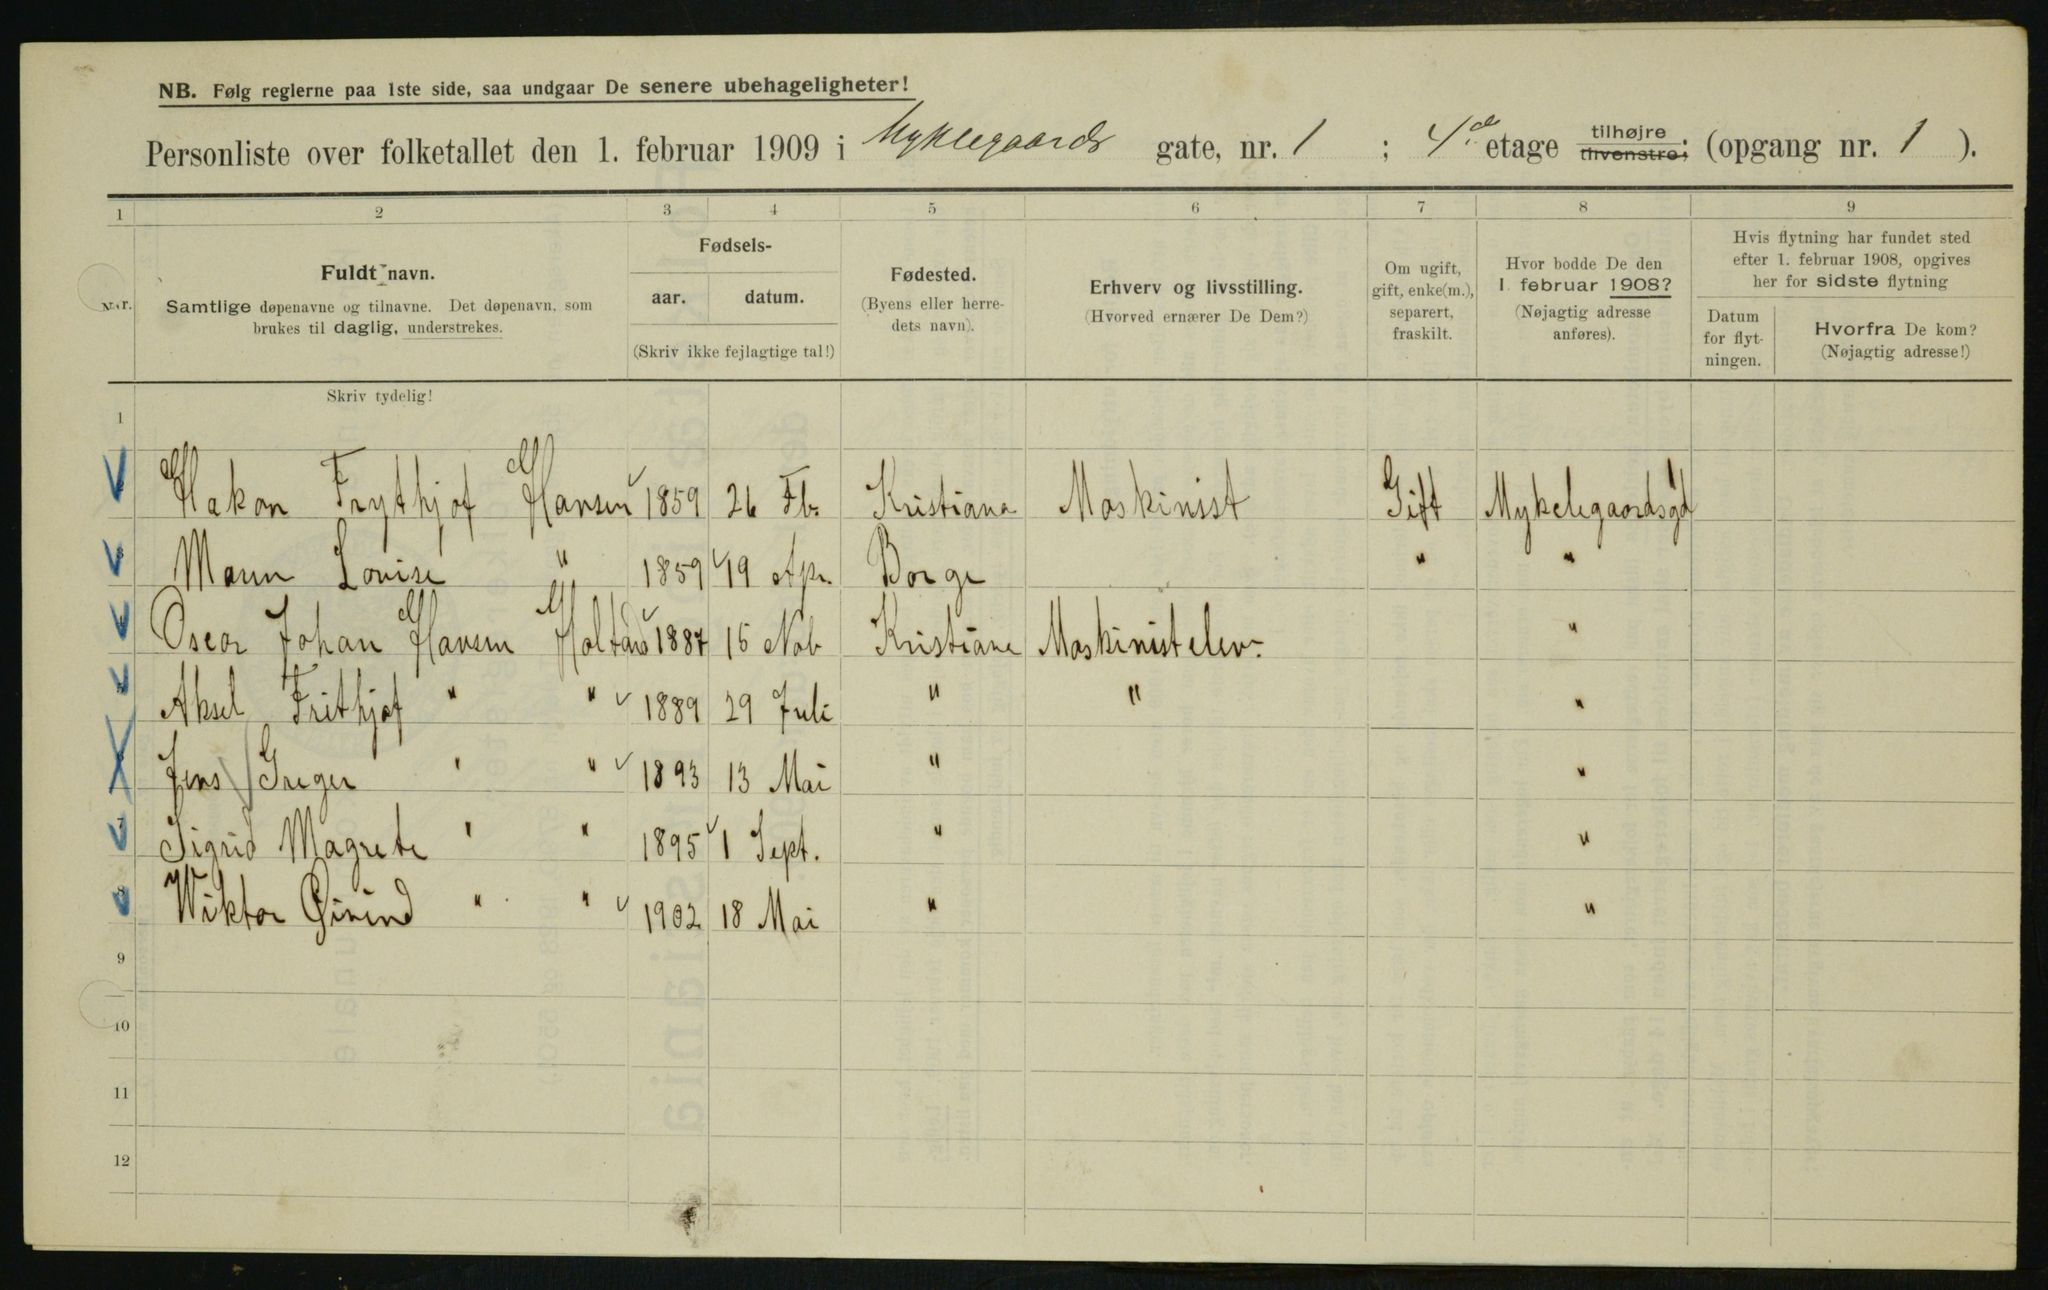 NB. Følg reglerne paa 1ste side, saa undgaar De senere ubehageligheter!
Personliste over folketallet den 1. februar 1909 i Myklegaards gate, nr. 1 ; 4de etage tilhøjre tilvenstre; (opgang nr. 1 ).
1 2 3 4 5 6 7 8 9
Nr. Fuldt navn. Samtlige døpenavne og tilnavne. Det døpenavn, som brukes til daglig, understrekes.
Fødsels-
aar. datum.
(Skriv ikke fejlagtige tal!)
Fødested. (Byens eller herre-
dets navn).
Erhverv og livsstilling.
(Hvorved ernærer De Dem?)
Om ugift,
gift, enke(m.),
separert,
fraskilt.
Hvor bodde De den
1 februar 1908?
(Nøjagtig adresse
anføres).
Hvis flytning har fundet sted
efter 1. februar 1908, opgives
her for sidste flytning
Datum
for flyt-
ningen.
Hvorfra De kom?
(Nøjagtig adresse!)
Skriv tydelig!
1
Hakon Frythjof Hansen 1859 26 Fb. Kristiana Maskinist Gift Mykelegaardsgd 1
Louise " 1859 19 Apr. Borge " "
Oscar Johan Hansen 1887 15 Nob Kristiana Maskinistelev. "
Aksel Frithjof " " 1889 29 Juli " " "
Jens Greger " " 1893 13 Mai " "
7 Sigrid Magrete " " 1895 1 Sept. " "
8 Wiktor Øivind " " 1902 18 Mai " "
9
10
11
12